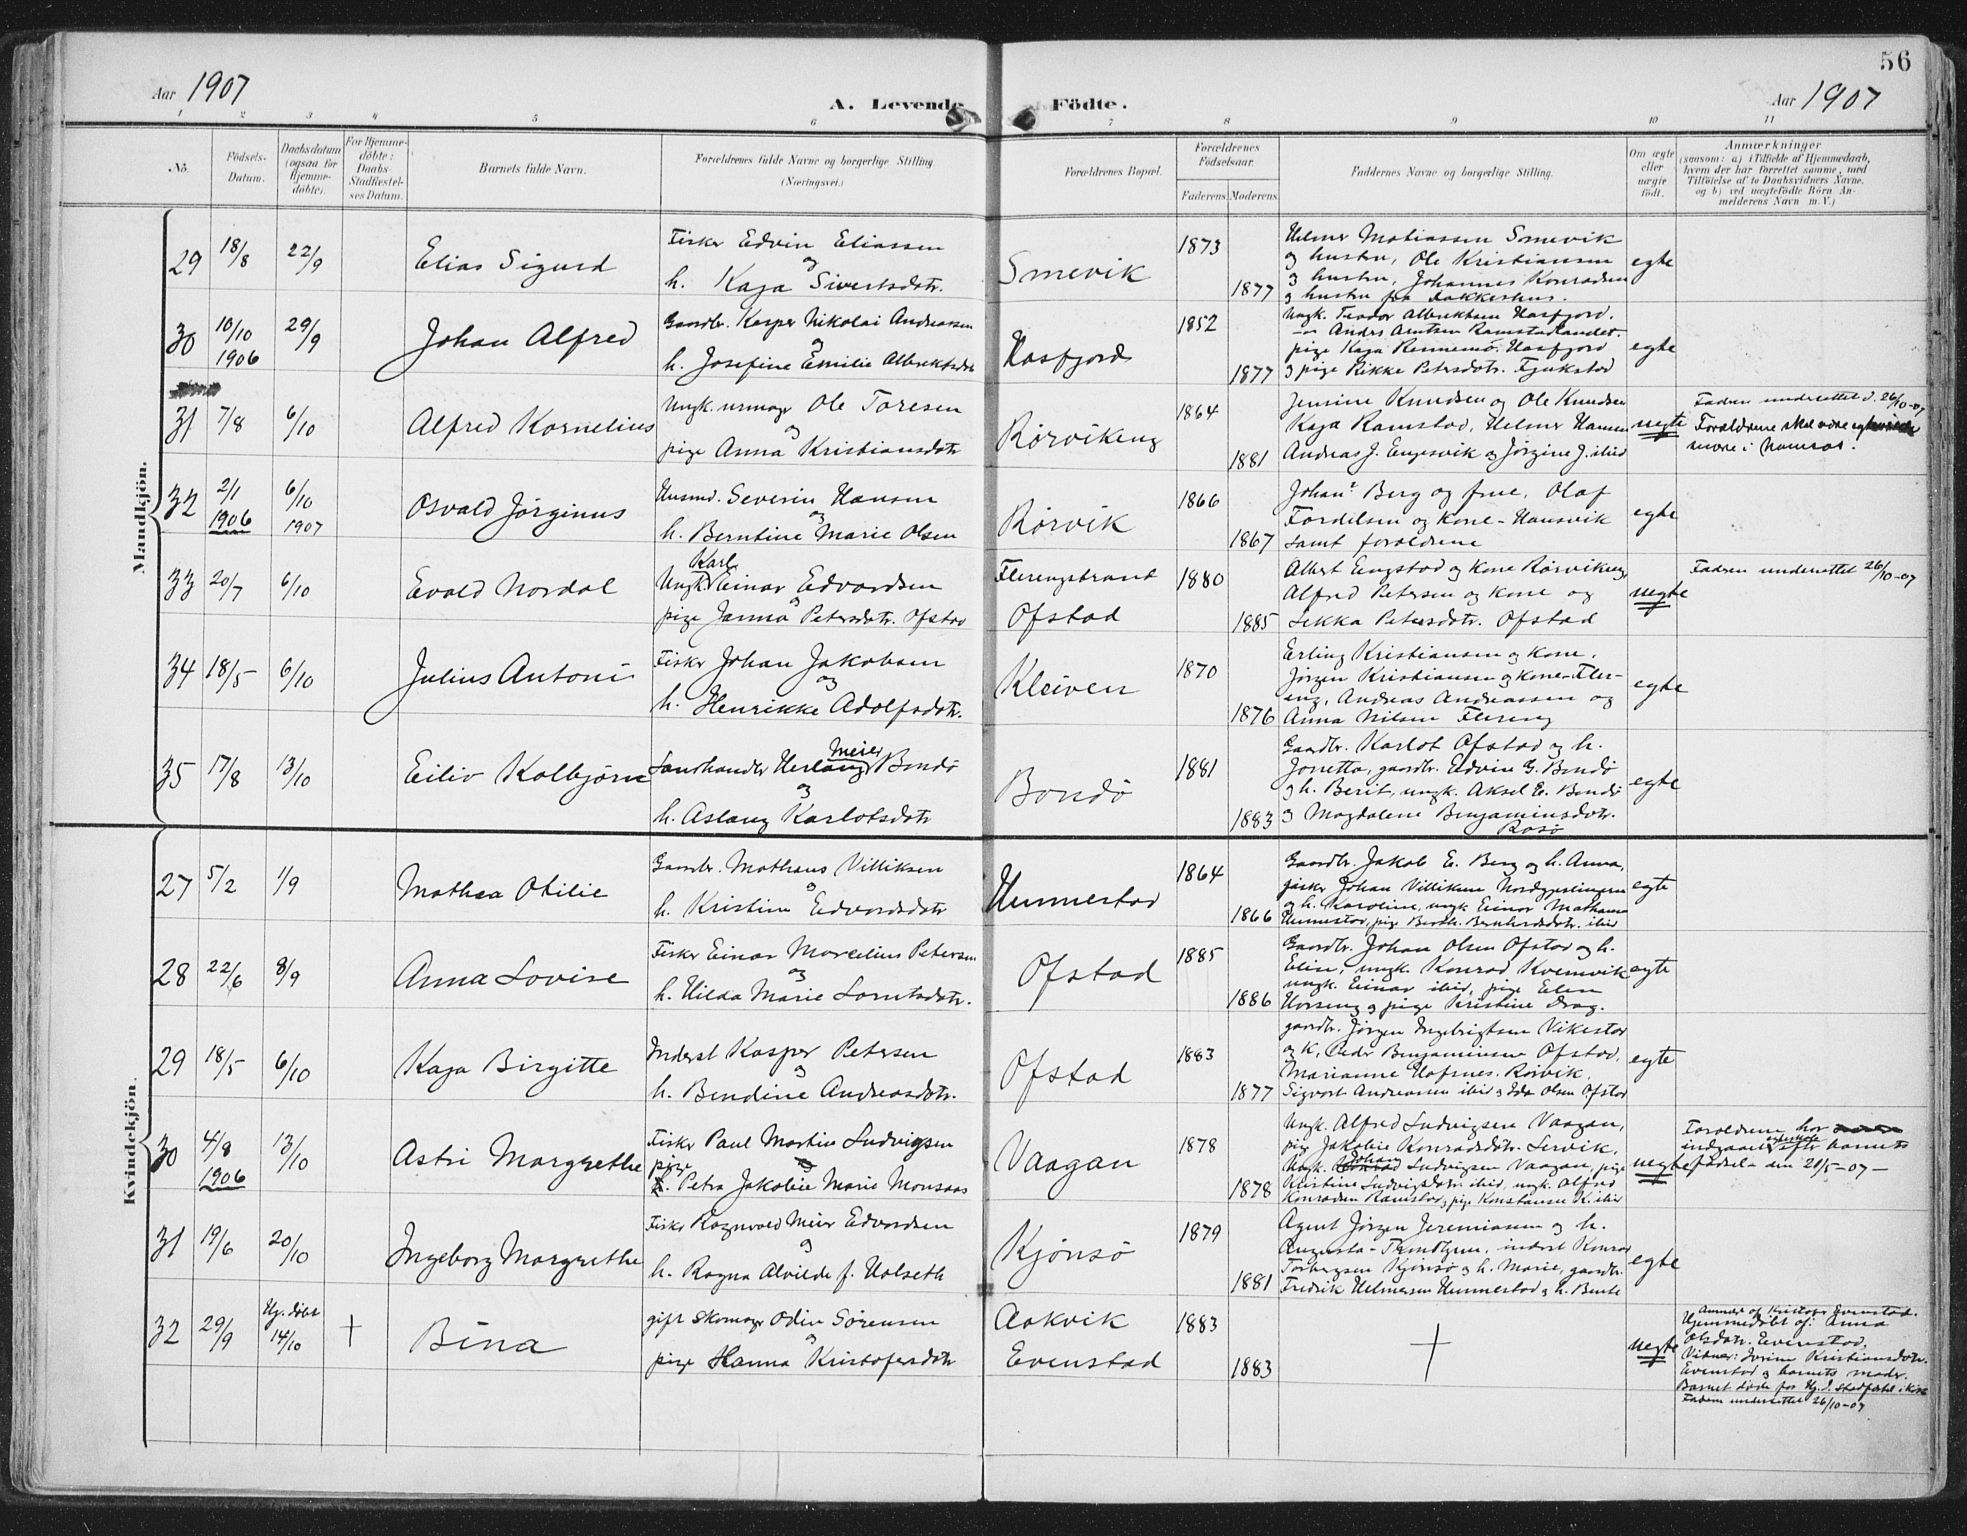 56
Aar 1907
A. Levende Födte.
Aar 1907
1 2 3 4 5 6 7 8 9 10 11
No.
Födsels-Datum.
Daabsdatum (ogsaa for Hjemme-döbte).
For Hjemme-döbte: Daabs-Stadfæstel-ses Datum.
Barnets fulde Navn.
Forældrenes fulde Navne og borgerlige Stilling (Næringsvei.)
Forældrenes Bopæl.
Forældrenes Födselsaar.
Faderens. Moderens.
Faddernes Navne og borgerlige Stilling.
Om ægte eller uægte födt.
Anmærkninger
(saasom: a) i Tilfælde af Hjemmedaab,
hvem der har forrettet samme, med
Tilföielse af to Daabsvidners Navne,
og b) ved uægtefödte Börn An-
melderens Navn m. V.)
Mandkjön.
29 18/8 22/9 Elias Sigurd
Fisker Edvin Eliassen
og
h. Kaja Sivertsdtr.
Smevik
1873
1877
Helmer Matiassen Smevik
og hustru, Ole Kristiansen
og hustru, Johannes Konradsen
og hustru fra Bakkeshus.
egte
30 10/10 1906 29/9 Johan Alfred
Gaardbr. Kasper Nikolai Andreassen
og
h. Josefine Emilie Albrektsdtr
Hasfjord
1852
1877
Ungk. Teodor Albrektsen Hasfjord.
— Andrs Arntsen Ramstadlandet.
pige Kaja Rennemo. Hasfjord
og pige Rikke Petersdotr. Fjukstad
egte
31 7/8 6/10 Alfred Kornelius
Ungk. urmager Ole Toresen
og
pige Anna Kristiansdotr
Rörvikeng
1864
1881
Jensine Knudsen og Ole Knudsen
Kaja Ramstad, Helmer Hansen
Andreas J. Engesvik og Jörgine J. ibid
uegte
Fadren underrettet d. 26/10-07
Foreldrene skal være
i Namsos.
32 2/1 1906 6/10 1907 Osvald Jörginus
Husmd. Severin Hansen
og
h. Berntine Marie Olsen
Rörvik
1866
1867
Johan Berg og frue, Olaf
Fordelsen og kone - Hansvik
samt foreldrene
egte
33 20/7 6/10 Evald Nordal
Ungk. Karl Einar Edvardsen
og
pige Janna Petersdotr. Ofstad
Flerengstrand
Ofstad
1880
1885
Albert Engstad og kone Rörvikeng
Alfred Petersen og kone og
Lekka Petersdotr. Ofstad
uegte
Fadren underrettet 26/10-07
34 18/5 6/10 Julius Antoni
Fisker Johan Jakobsen
og
h. Henrikke Adolfsdotr.
Kleiven
1870
1876
Erling Kristiansen og kone.
Jörgen Kristiansen og kone - Fler-
eng, Andreas Andreassen og
Anna Nilsen Flereng
egte
35 17/8 13/10 Eiliv Kolbjörn
Landhandler Herlaug Meier Bondö
og
h. Aslaug Karlotsdotr
Bondö
1881
1883
Gaardbr. Karlot Ofstad og h.
Jonetta, gaardbr. Edvin G. Bondö
og h. Berit, ungk. Aksel E. Bondö
og Magdalene Benjaminsdotr.
Rosö
egte
Kvindekjön.
27 5/2 1/9 Mathea Otilie
Gaardbr. Mathæus Villiksen
og
h. Kristine Edvardsdotr
Hunnestad
1864
1866
Gaardbr. Jakob E. Berg og h. Anna,
fisker Johan Villiksen
og h. Karoline, ungk Einar Mathæusen
Hunnestad, pige Bernhardsdotr. ibid
egte
28 22/6 8/9 Anna Lovise
Fisker Einar Marcelius Petersen
og
h. Hilda Marie Lorntsdotr.
Ofstad
1885
1886
Gaardbr. Johan Olsen Ofstad og h.
Elise, ungk. Konrad Kvernvik
ungk. Einar ibid, pige Elen
Horseng og pige Kristine Drag.
egte
29 18/5 6/10 Kaja Birgitte
Inderst Kasper Petersen
og
h. Bendine Andreasdotr.
Ofstad
1883
1877
gaardbr. Jörgen Ingebrigtsen Vikestad
og k, Peder Benjaminsen Ofstad,
Marianne Hafnes. Rörvik.
Sigvart Andreassen ibid og Ida Olsen Ofstad
egte
30 4/8 1906 13/10 Astri Margrethe
Fisker Paul Martin Ludvigsen
og
pige Petra Jakobie Marie Monsaas
Vaagan
1878
1878
Ungk. Alfred Ludvigsen Vaagan,
pig Jakobie Konradsdotr. Servik,
Ungk. Johan Ludvigsen Vaagan, pige
Kristine Ludvigsdotr. ibid, ungk. Alfred
Konradsen Ramstad, pige Konstanse K. ibid
uegte
Foreldrene har
indgaaet egteskab efter barnets
födsel - den 20/5-07 -
31 19/6 20/10 Ingeborg Margrethe
Fisker Ragnvald Meier Edvardsen
og
h. Ragna Alvilde f. Holseth
Kjönsö
1879
1881
Agent Jörgen Jeremiasen og h.
Augusta - Trondhjem, inderst Konrad
Torbergsen Kjönsö og h. Marie, gaardbr.
Fredrik Helmersen Hunnestad og h. Bente
egte
32 29/9 Hj. döbt 14/10 + Bina
gift skomager Odin Sörensen
og
pige Hanna Kristofersdotr
Aakvik
Evenstad
1883
1883
+
uegte
Anmeldt af Kristofer Evenstad.
Hjemmedöbt af: Anna
Olsdotr. Evenstad,
Vidner: Jorine Kristiansdotr.
Evenstad og barnets moder.
Barnet döde for Hj. d. stadfestel. i kirk
Fadren underrettet 26/10-07